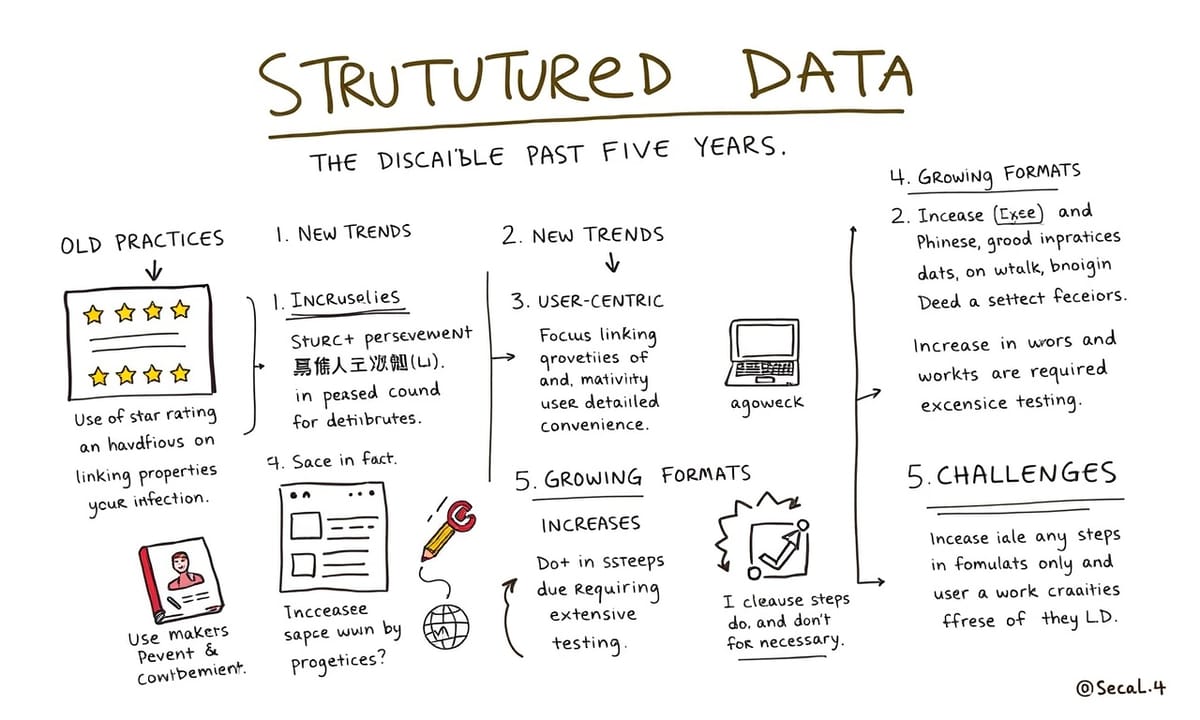 STRUTUTUReD DATA
THE DISCAIBLE PAST FIVE YEARS.
OLD PRACTICES
Use of star rating
an havdfious on
linking properties
youR infection.
Use makers
Pevent &
Cowtbemient.
1. NEW TRENDS
1. INCRUSELIES
STURC+ perseveMeNT
in peased cound
for detiibrutes.
4. Sace in fact.
Incceasee
sapce wwn by
progetices?
2. NEW TRENDS
3. USER-CENTRIC
Focus linking
qrovetiies of
and, mativirty
useR detailled
convenience.
agoweck
5. GROWING FORMATS
INCREASES
Do+ in SSTEEPS
due Requiring
extensive
testing.
I cleause steps
do, and don't
foR necessary.
4. GROWING FORMATS
2. Incease (Exee) and
Phinese, grood inpratices
dats, on wtalk, bnoigin
Deed a settect feceiors.
Increase in wors and
workts are required
excensice testing.
5. CHALLENGES
Incease iale any steps
in fomulats only and
user a work craaities
ffrese of they LD.
@SecaL.4